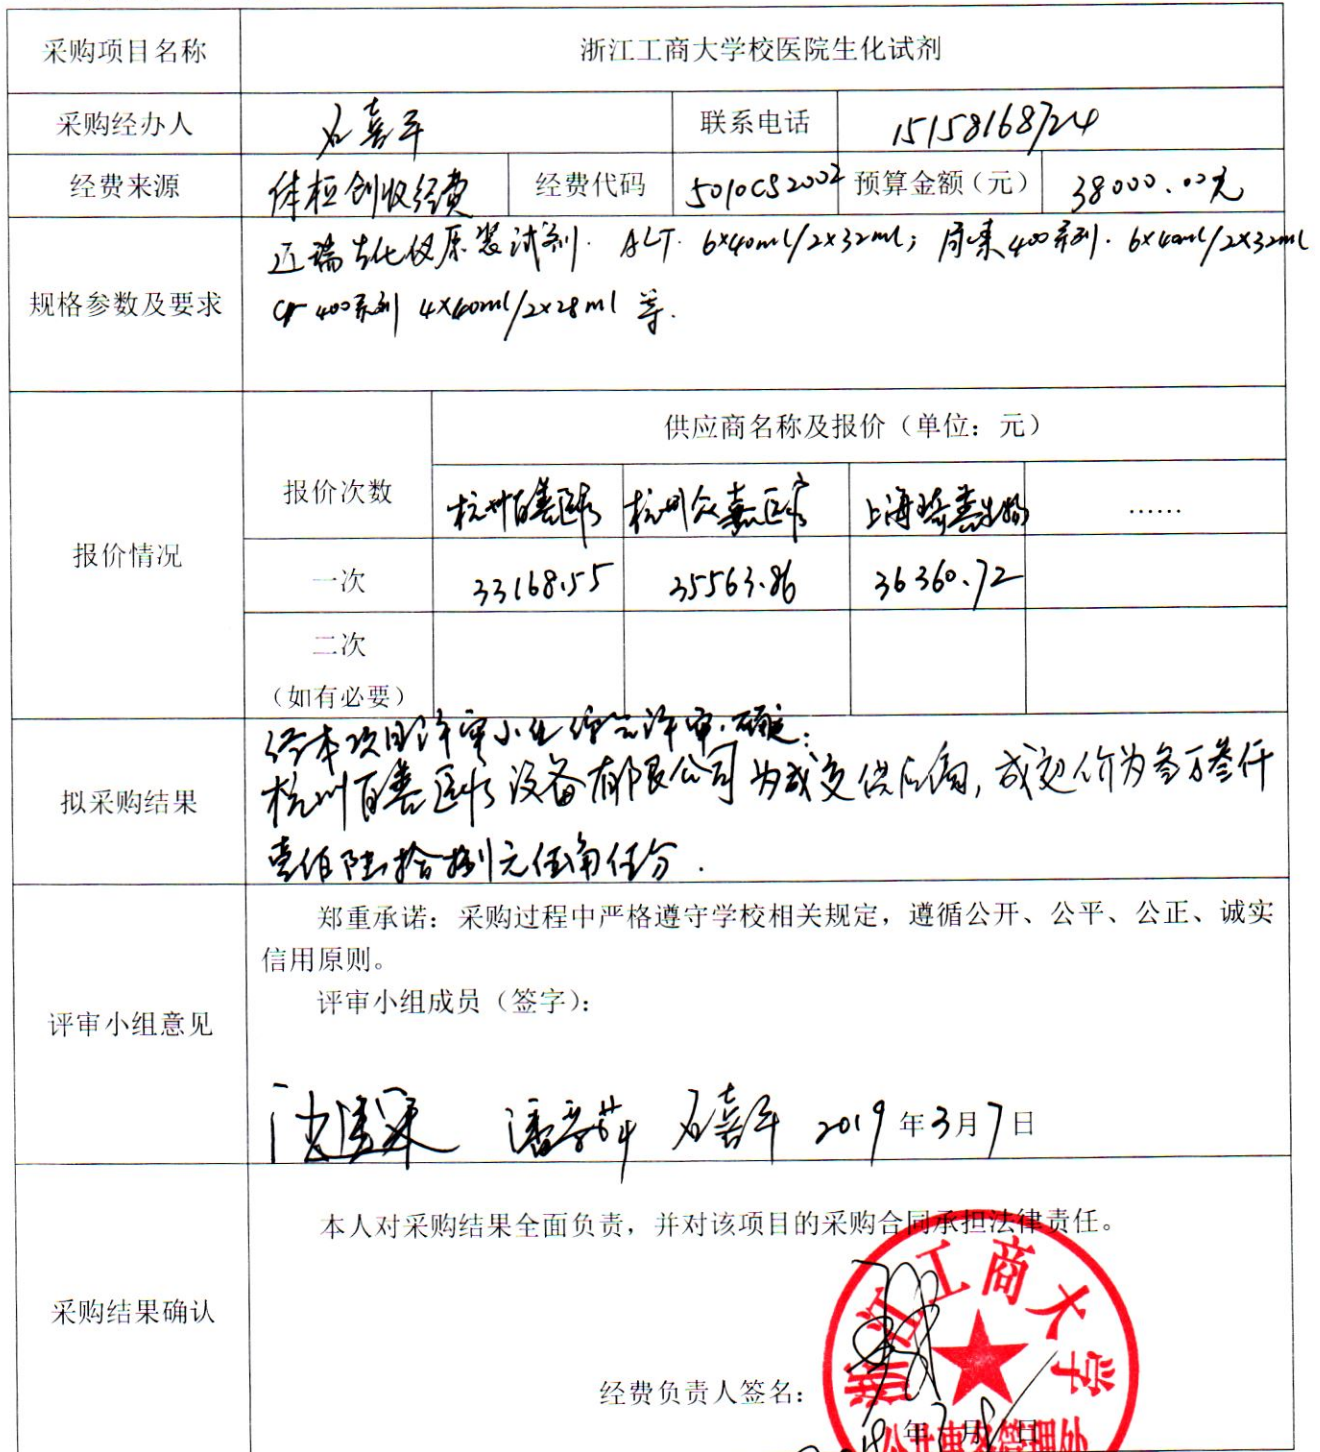 采购项目名称 浙江工商大学校医院生化试剂
采购经办人 石喜平 联系电话 15158168724
经费来源 体检创收经费 经费代码 5010CS2002 预算金额（元） 38000.00元
规格参数及要求
迈瑞生化仪原装试剂. ALT. 6x40ml/2x32ml; 尿素400系列. 6x40ml/2x32ml
Cr 400系列 4x40ml/2x28ml 等.
报价情况
报价次数
供应商名称及报价（单位：元）
杭州百善医疗 杭州众嘉医疗 上海琦 生物 ……
一次 33168.55 35563.86 36360.72
二次
（如有必要）
拟采购结果
经本项目评审小组综合评审.确定:
杭州百善医疗设备有限公司为成交供应商, 成交价为叁万叁仟
壹佰陆拾捌元伍角伍分.
评审小组意见
郑重承诺：采购过程中严格遵守学校相关规定，遵循公开、公平、公正、诚实
信用原则。
评审小组成员（签字）：
石喜平 2019年3月7日
采购结果确认
本人对采购结果全面负责，并对该项目的采购合同承担法律责任。
浙江工商大学
经费负责人签名：
年 月 日